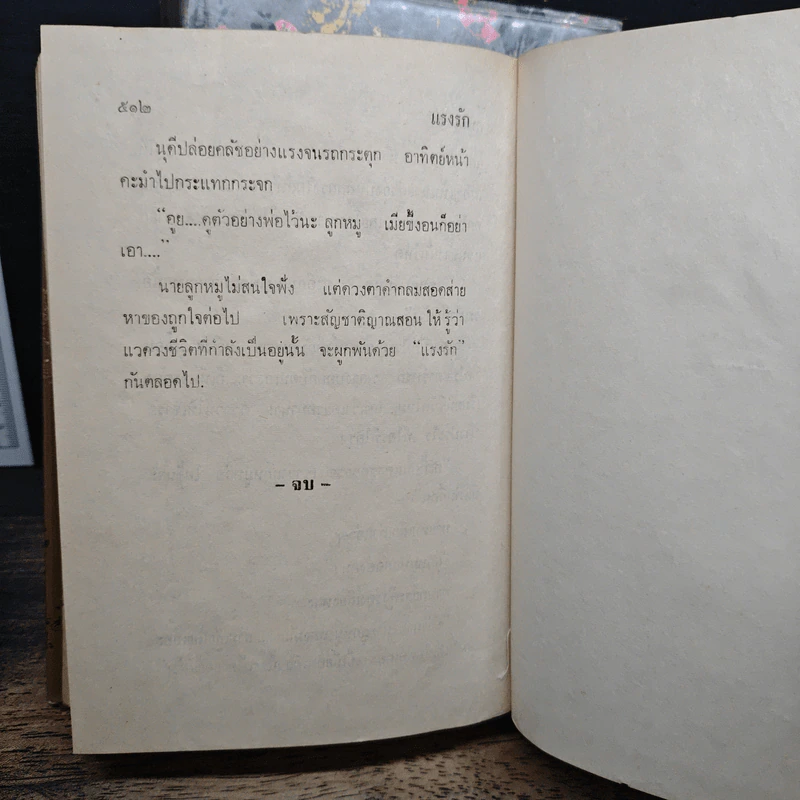 ๕๑๒
แรงรัก
นุดีปล่อยคลัชอย่างแรงจนรถกระตุก อาทิตย์หน้า
คะมำไปกระแทกกระจก
“อูย....ดูตัวอย่างพ่อไว้นะ ลูกหมู เมียขี้งอนก็อย่า
เอา....”
นายลูกหมูไม่สนใจฟัง แต่ดวงตาดำกลมสอดส่าย
หาของถูกใจต่อไป เพราะสัญชาติญาณสอน ให้ รู้ว่า
แวดวงชีวิตที่กำลังเป็นอยู่นั้น จะผูกพันด้วย “แรงรัก”
กันตลอดไป.
– จบ –